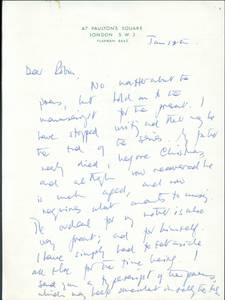 47 PAULTONS SQUARE
LONDON S.W.3
FLAXMAN
Jan
Dear Robin,
No matter about the
poems, but hold on to the
manuscript for the present. I
have stopped writing and they may be
the end of the series. My father
nearly died, before Christmas,
and although now recovered he
is much aged, and now
requires what amounts to nursing.
The ordeal for my mother is also
very great; and for himself.
I have simply had to put aside
all else for the time being. I
send you a typescript of the poems,
which may keep somewhat